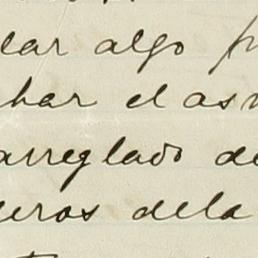 lar algo
har el as
arreglado de
eros dela